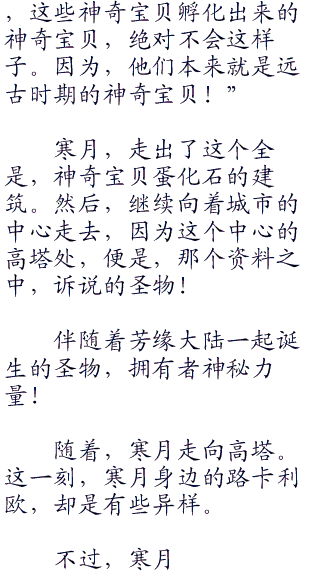 ，这些神奇宝贝孵化出来的
神奇宝贝，绝对不会这样
子。因为，他们本来就是远
古时期的神奇宝贝！”
寒月，走出了这个全
是，神奇宝贝蛋化石的建
筑。然后，继续向着城市的
中心走去，因为这个中心的
高塔处，便是，那个资料之
中，诉说的圣物！
伴随着芳缘大陆一起诞
生的圣物，拥有者神秘力
量！
随着，寒月走向高塔。
这一刻，寒月身边的路卡利
欧，却是有些异样。
不过，寒月